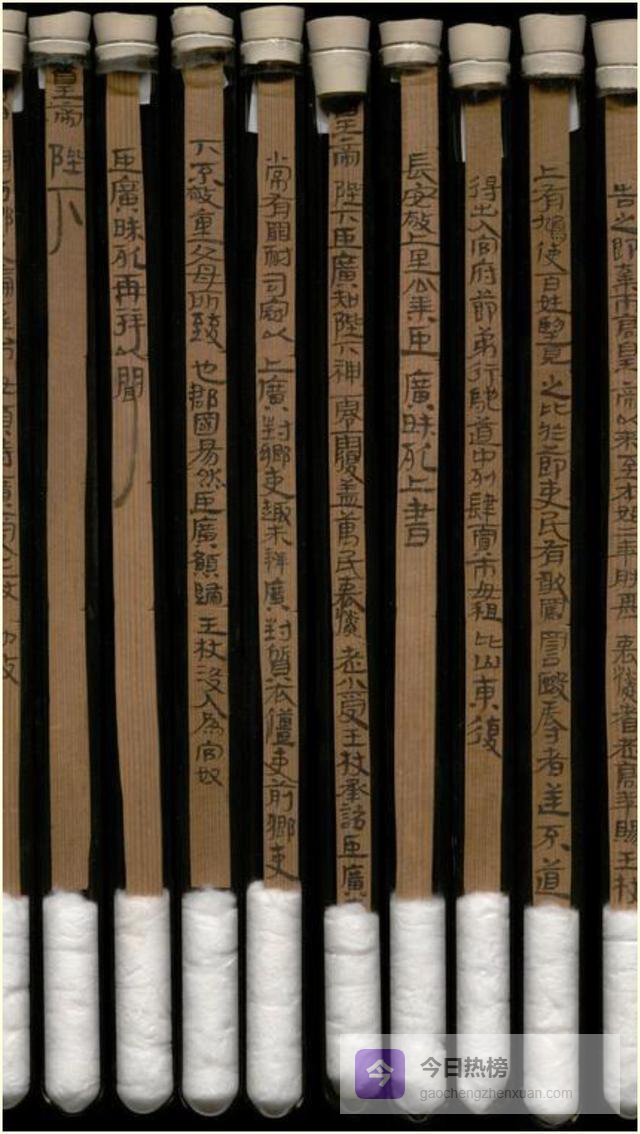 高皇帝以來至本始二年朕甚哀憐耆老高年賜王杖
上有鳩使百姓望見之比於節吏民有敢罵詈毆辱者逆不道
得出入官府節弟行馳道中列肆賈市毋租比山東復
長安敬上里公乘臣廣昧死上書
皇帝陛下臣廣知陛下神零覆蓋萬民哀憐老小受王杖承詔臣廣
常有罪耐司寇以上廣對鄉吏趣未辨廣對質衣彊吏前鄉吏
下不敬重父母所致也郡國易然臣廣願歸王杖沒入為官奴
臣廣昧死再拜以聞
皇帝陛下
今
今日热榜
gaochengzhenxuan.com